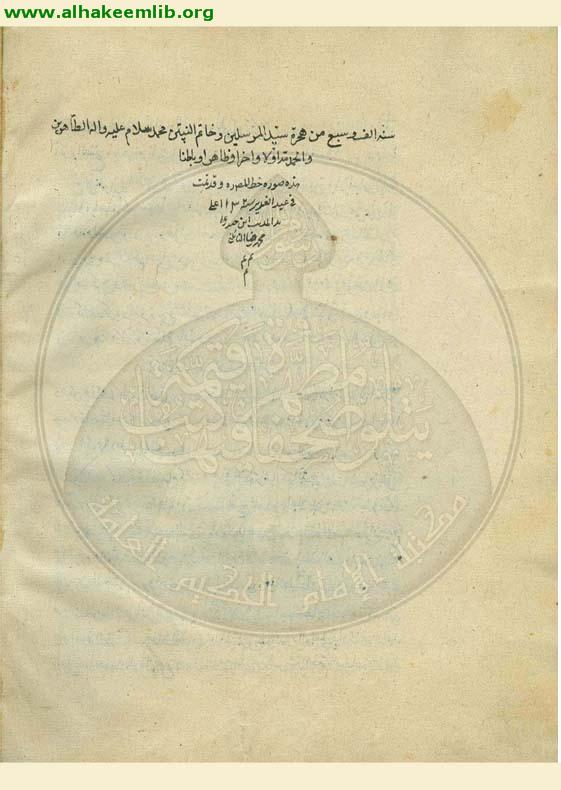 www.alhakeemlib.org
سنة الف و سبع من هجرة سيّد المرسلين و خاتم النبيّن محمد سلام عليه واله الطاهرين
و الحمد لله اولا و اخرا و ظاهرا و باطنا
هذه صورة خط المصنف و قد تمت
في عيد الغدير
محمد رضا
م م
م
يتلوا صحفا مطهرة فيها كتب قيمة
مكتبة الإمام الحكيم العامة